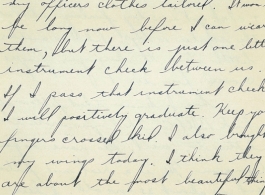 my officers clothes tailored. It won
be long now before I can wear
them, but there is just one litt
instrument check between us.
If I pass that instrument check
I will positively graduate. Keep yo
fingers crossed kid. I also bough
my wings today. I think they
are about the most beautiful thin